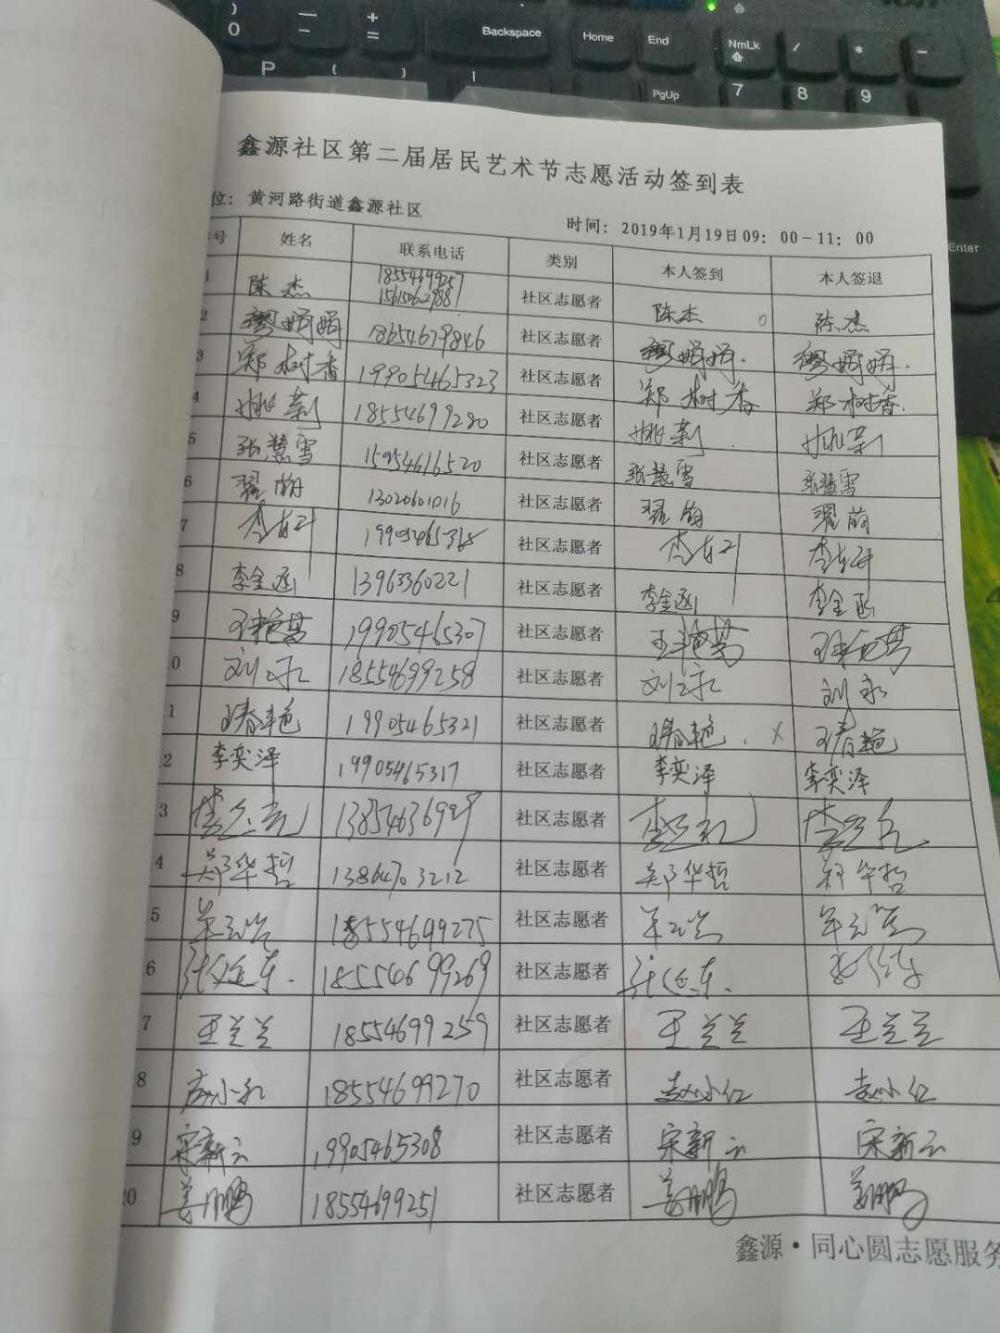 ) 0
- +
=
Backspace
Home
End
NmLk
/
*
-
P
PgUp
7
8
9
Enter
鑫源社区第二届居民艺术节志愿活动签到表
位：黄河路街道鑫源社区
时间：2019年1月19日09：00-11：00
号 姓名 联系电话 类别 本人签到 本人签退
1 陈杰 18554699257 15615062988 社区志愿者 陈杰 陈杰
2 穆娟娟 18654679846 社区志愿者 穆娟娟. 穆娟娟.
3 郑树香 19905465323 社区志愿者 郑树香 郑树香.
4 姚新 18554699280 社区志愿者 姚新 姚新
5 张慧雪 15954616520 社区志愿者 张慧雪 张慧雪
6 翟萌 13020601016 社区志愿者 翟萌 翟萌
7 社区志愿者
8 李金函 13963360221 社区志愿者 李金函 李金函
9 19905465307 社区志愿者
0 刘永 18554699258 社区志愿者 刘永 刘永
1 王春艳 19905465321 社区志愿者 王春艳. × 王春艳
2 李奕泽 19905465317 社区志愿者 李奕泽 李奕泽
3 社区志愿者
4 郑华哲 13864703212 社区志愿者 郑华哲 郑华哲
5 18554699275 社区志愿者
6 张延东. 18554699269 社区志愿者 张延东.
7 王兰兰 18554699259 社区志愿者 王兰兰 王兰兰
8 18554699270 社区志愿者 赵小红 赵小红
9 宋新云 19905465308 社区志愿者 宋新云 宋新云
0 姜鹏 18554699251 社区志愿者 姜鹏 姜鹏
鑫源·同心圆志愿服务